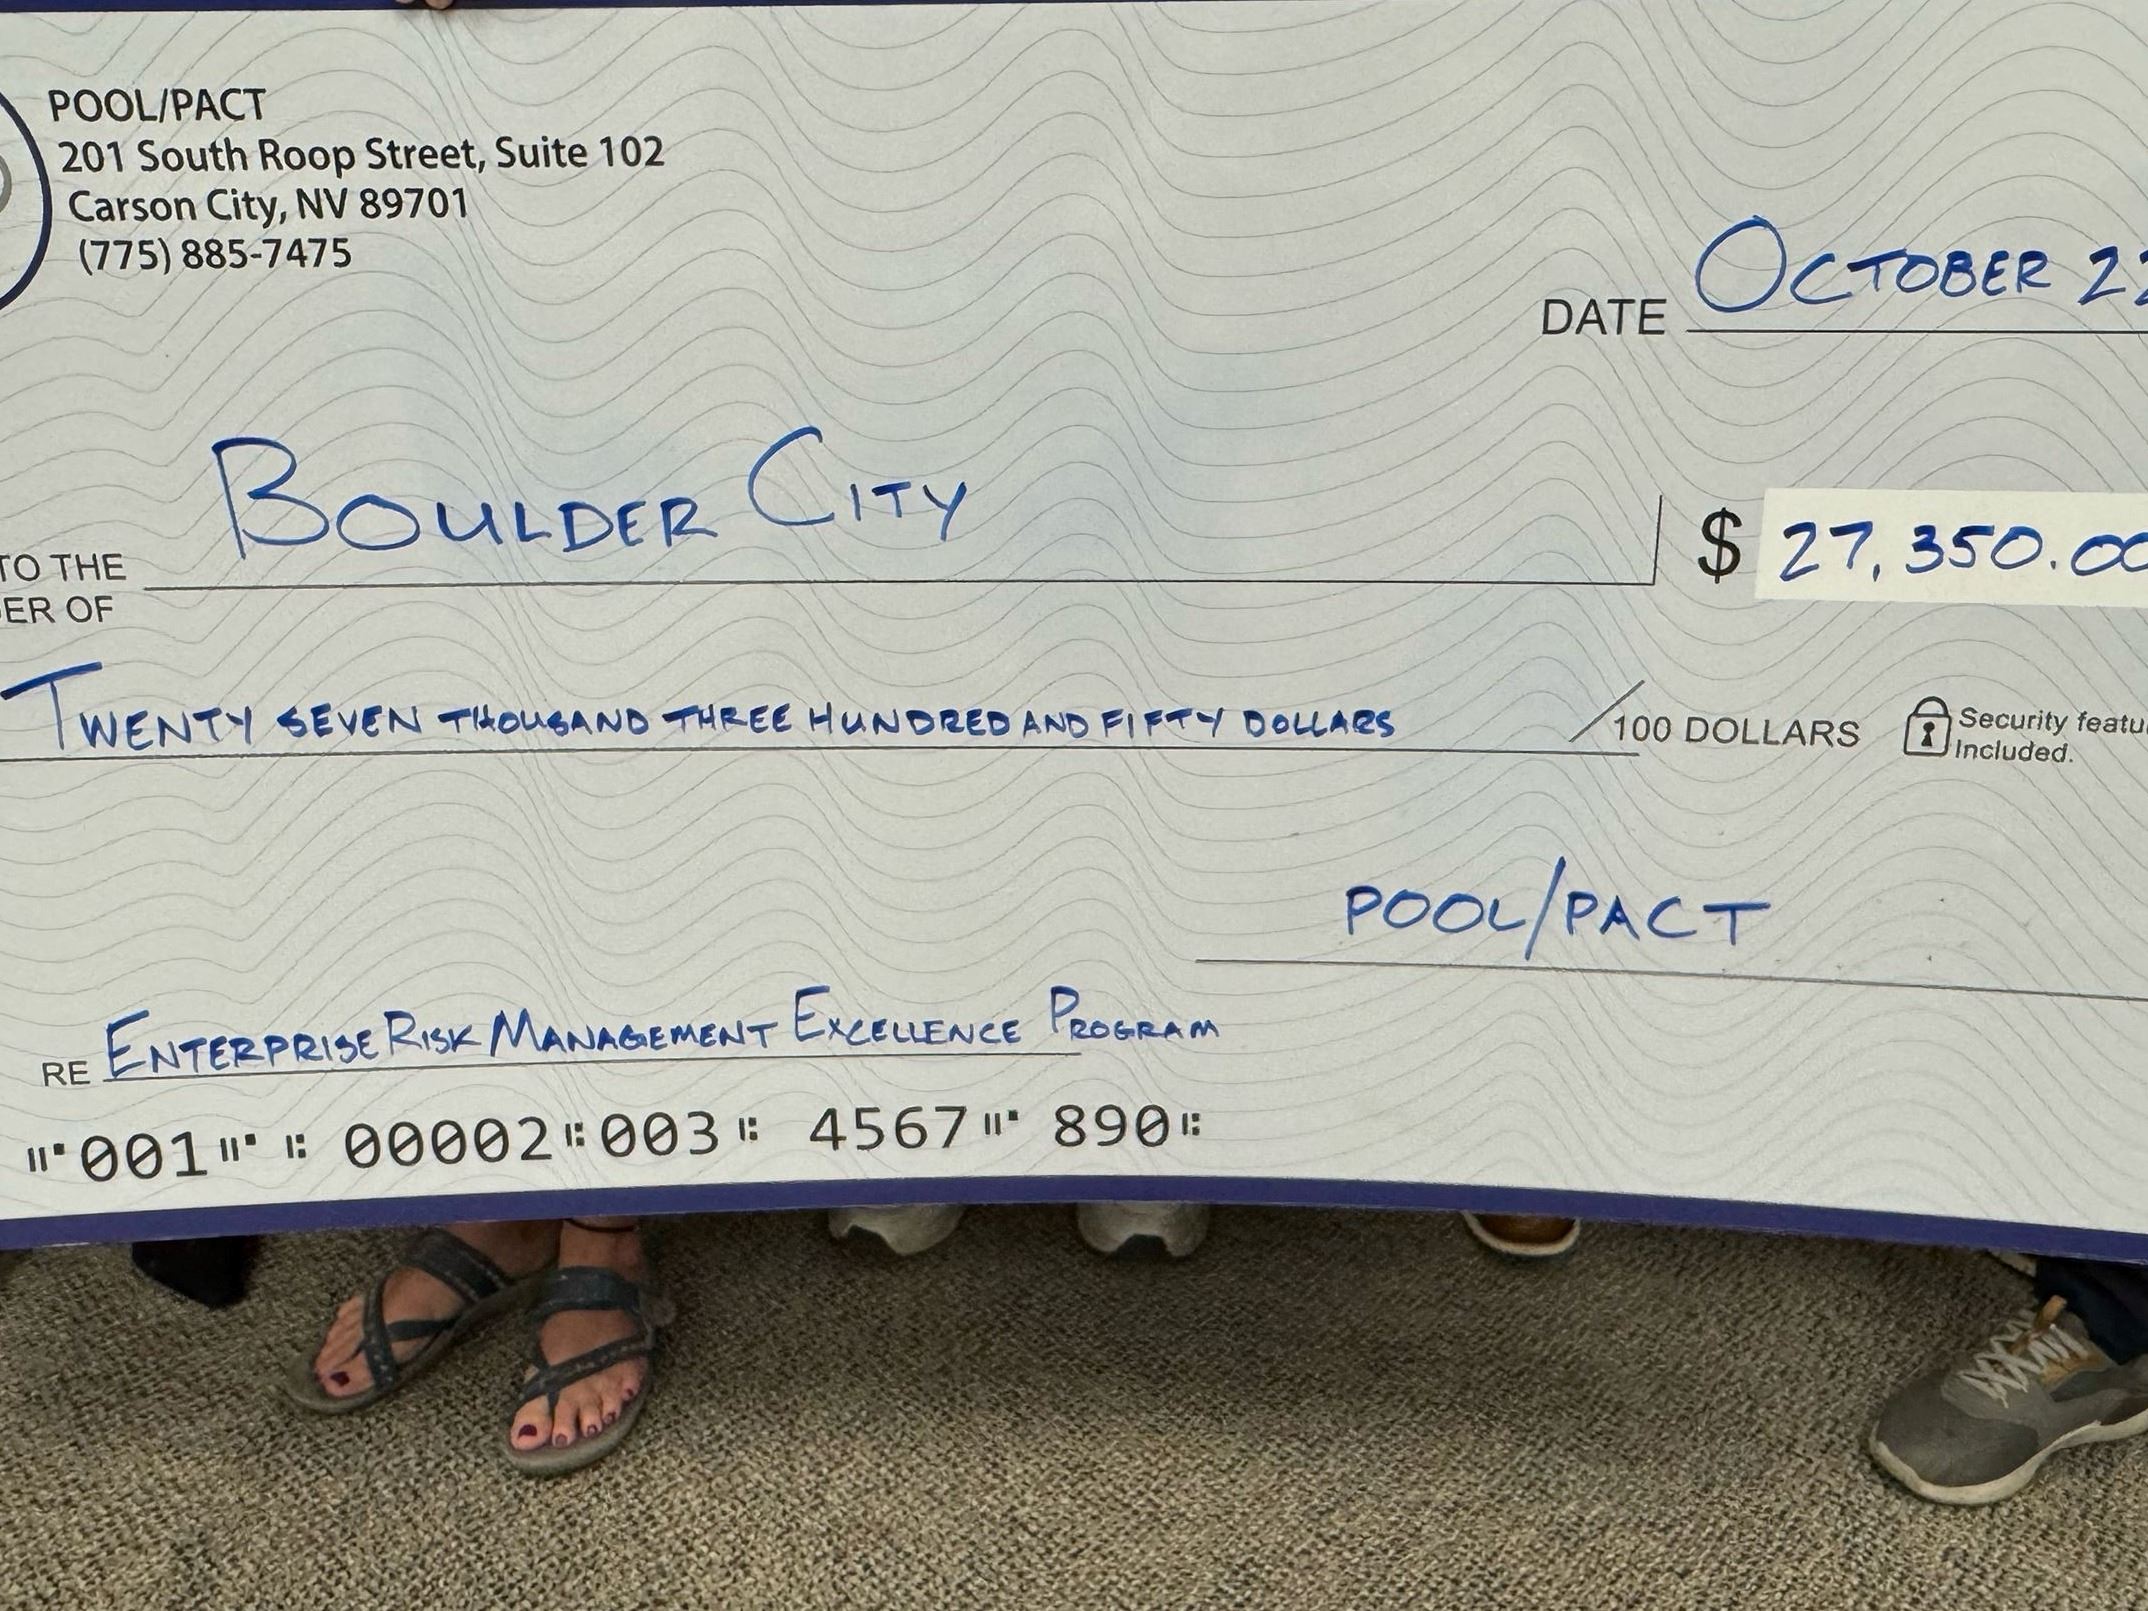 POOL/PACT
201 South Roop Street, Suite 102
Carson City, NV 89701
(775) 885-7475
DATE OCTOBER 22
BOULDER CITY
TO THE
ER OF
$ 27,350.00
TWENTY SEVEN THOUSAND THREE HUNDRED AND FIFTY DOLLARS /100 DOLLARS
Security featu
Included.
POOL/PACT
RE ENTERPRISE RISK MANAGEMENT EXCELLENCE PROGRAM
⑈001⑈ ⑆ 00002⑆003⑆ 4567⑈ 890⑆